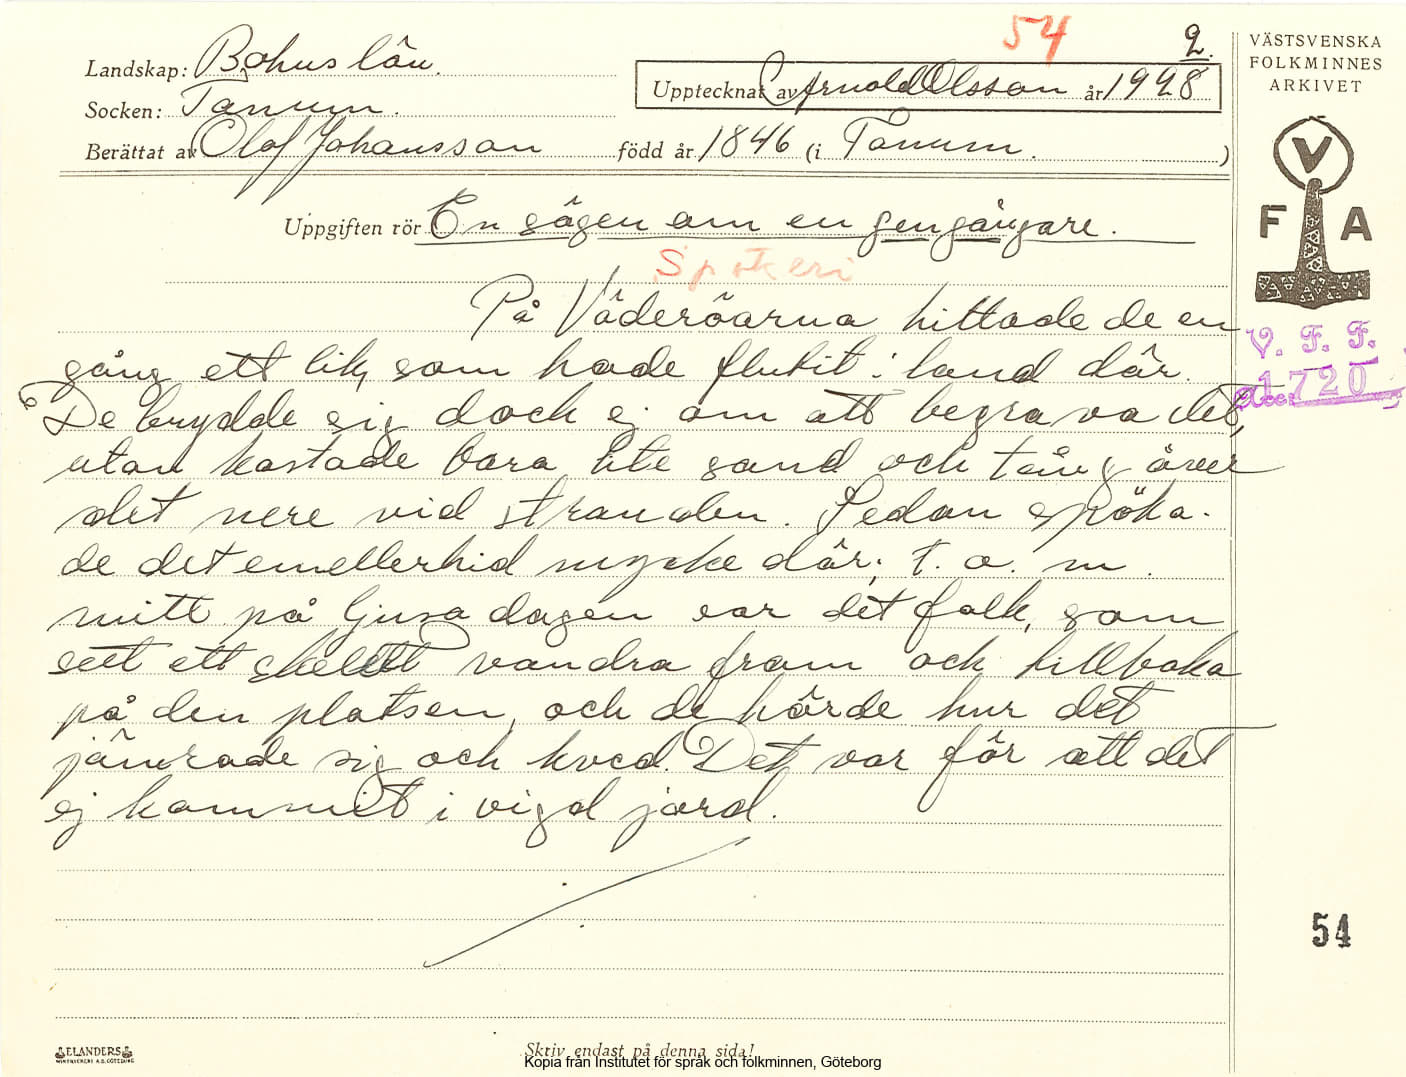 54
2.
VÄSTSVENSKA
FOLKMINNES
ARKIVET
Landskap: Bohuslän.
Upptecknat av Arnold Olsson år 1928
Socken: Tanum.
Berättat av Olof Johansson född år 1846 (i Tanum. )
V
F A
Uppgiften rör En sägen om en gengångare.
Spökeri
På Väderöarna hittade de en
gång ett lik, som hade flutit i land där.
De brydde sig dock ej om att begrava det,
utan kastade bara lite sand och tång över
det nere vid stranden. Sedan spöka-
de det emellertid mycke där; t. o. m.
mitt på ljusa dagen var det folk, som
sett ett skelett vandra fram och tillbaka
på den platsen, och de hörde hur det
jämrade sig och kved. Det var för att det
ej kommit i vigd jord.
V. F. F.
Acc: 1720
54
ELANDERS
Skriv endast på denna sida!
Kopia från Institutet för språk och folkminnen, Göteborg